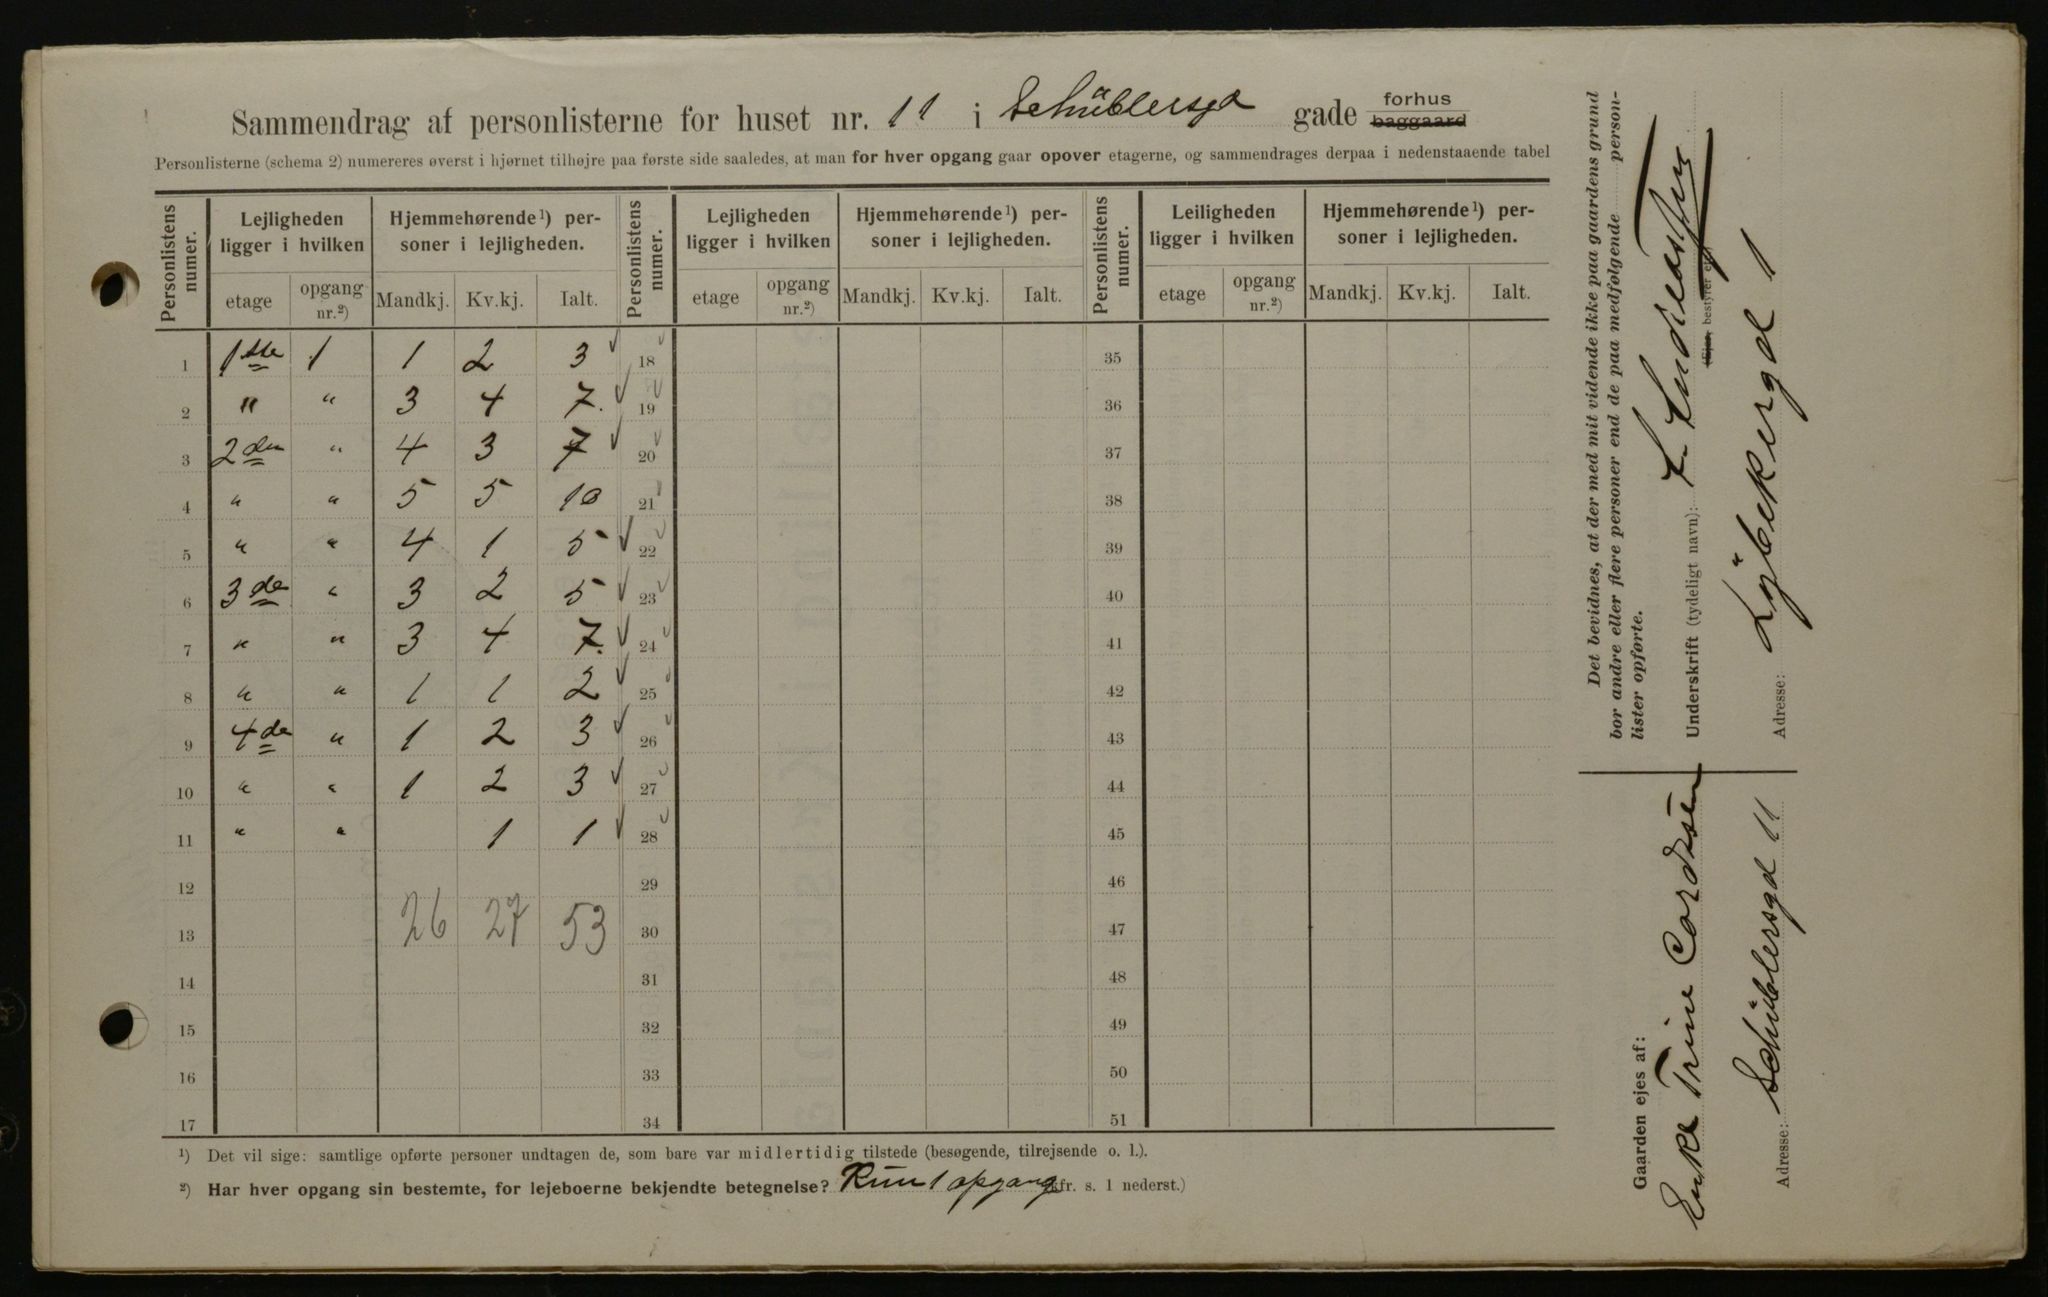 Sammendrag af personlisterne for huset nr. 11 i Schüblersgd gade forhus baggaard
Personlisterne (schema 2) numereres øverst i hjørnet tilhøjre paa første side saaledes, at man for hver opgang gaar opover etagerne, og sammendrages derpaa i nedenstaaende tabel
Personlistens numer. Lejligheden ligger i hvilken Hjemmehørende ¹) personer i lejligheden. Personlistens numer. Lejligheden ligger i hvilken Hjemmehørende ¹) personer i lejligheden. Personlistens numer. Leiligheden ligger i hvilken Hjemmehørende ¹) personer i lejligheden.
etage opgang nr.²) Mandkj. Kv.kj. Ialt. etage opgang nr.²) Mandkj. Kv.kj. Ialt. etage opgang nr.²) Mandkj. Kv.kj. Ialt.
1 1ste 1 1 2 3 18 35
2 " " 3 4 7. 19 36
3 2den " 4 3 7 20 37
4 " " 5 5 10 21 38
5 " " 4 1 5 22 39
6 3de " 3 2 5 23 40
7 " " 3 4 7. 24 41
8 " " 1 1 2 25 42
9 4de " 1 2 3 26 43
10 " " 1 2 3 27 44
11 " " 1 1 28 45
12 29 46
13 26 27 53 30 47
14 31 48
15 32 49
16 33 50
17 34 51
¹) Det vil sige: samtlige opførte personer undtagen de, som bare var midlertidig tilstede (besøgende, tilrejsende o. l.).
²) Har hver opgang sin bestemte, for lejeboerne bekjendte betegnelse? Kun 1 opgang (kfr. s. 1 nederst.)
Det bevidnes, at der med mit vidende ikke paa gaardens grund
bor andre eller flere personer end de paa medfølgende person-
lister opførte.
Underskrift (tydeligt navn):
(Ejer, bestyrer etc.)
Adresse: Lybekergd 1
Gaarden ejes af:
Enke Trine Cordsen
Adresse: Schüblersgd 11